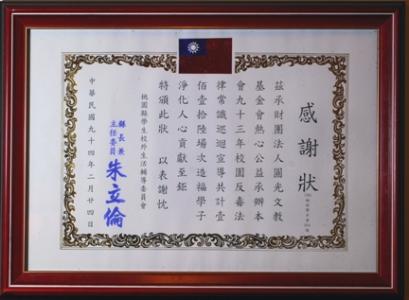 感謝狀
茲承財團法人圓光文教
基金會熱心公益承辦本
會九十三年校園反毒法
律常識巡迴宣導共計壹
佰壹拾陸場次造福學子
淨化人心貢獻至鉅
特頒此狀 以表謝忱
桃園縣學生校外生活輔導委員會
縣長兼
主任委員 朱立倫
中華民國九十四年二月廿四日